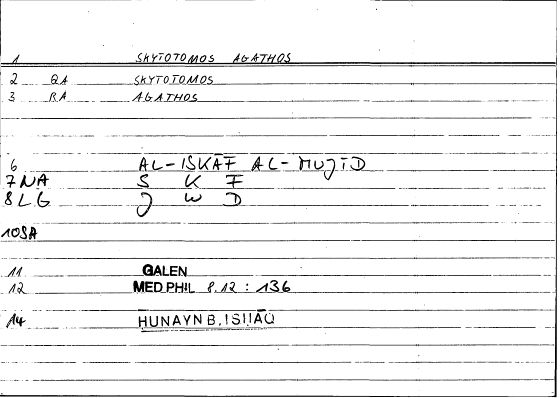 1 SKYTOTOMOS AGATHOS
2 QA SKYTOTOMOS
3 RA AGATHOS
6 AL-ISKĀF AL-MUJĪD
7 NA S K F
8 LG J W D
10 SA
11 GALEN
12 MED.PHIL 8.12 : 136
14 ḤUNAYN B. ISḤĀQ